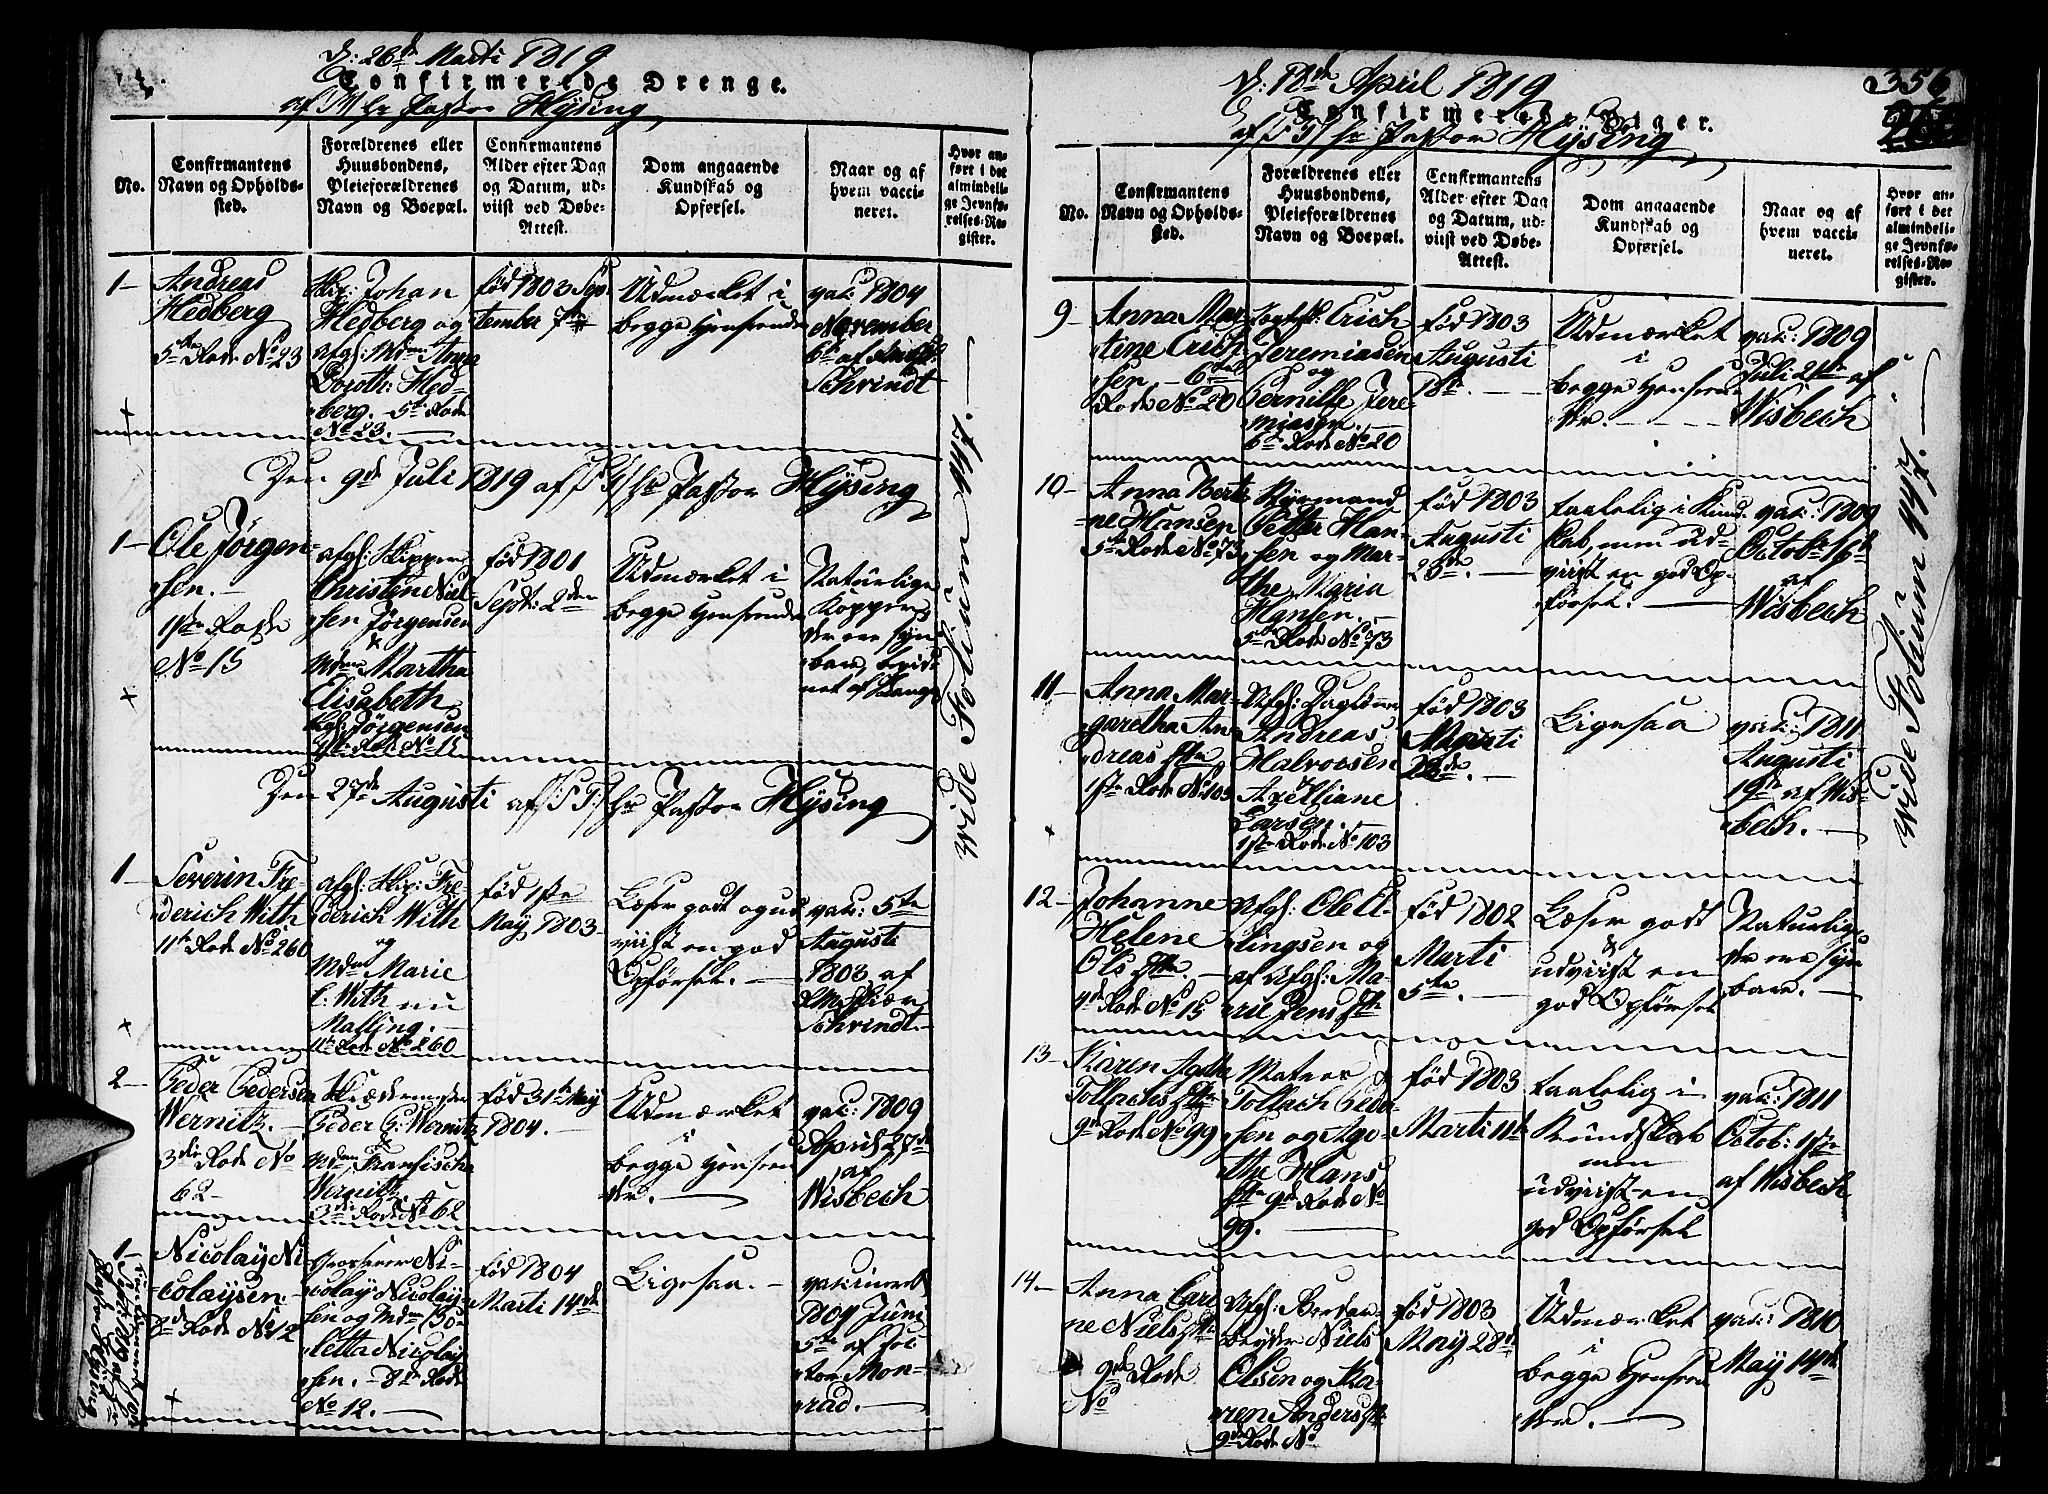 d: 26de Marti 1819
Confirmerede Drenge.
af Hr Pastor Hysing
No.
Confirmantens
Navn og Opholds-
sted.
Forældrenes eller
Huusbondens,
Pleieforældrenes
Navn og Boepæl.
Confirmantens
Alder efter Dag
og Datum, ud-
viist ved Døbe-
Attest.
Dom angaaende
Kundskab og
Opførsel.
Naar og af
hvem vacci-
neret.
Hvor an-
ført i det
almindeli-
ge Jevnfø-
relses-Re-
gister.
1-
Andreas
Hedberg
5te Rode No 23
Skip: Johan
Hedberg og
afg: Mdm Anna
Doroth: Hed-
berg. 5te Rode
No 23.
Født 1803 Sep-
tember 7de
Udmærket i
begge Henseender
vac: 1804
November
6te af
Schrindt
Den 9de Juli 1819 af Hr Pastor Hysing
1-
Ole Jörgen-
sen.
1ste Rode
No 15
afg: Skipper
Christen Niel-
sen Jörgensen
&
Mdm Martha
Elisabeth
Jörgensen
1ste Rode No 15
Född 1801
Sept: 2den
Udmærket i
begge Henseender
Naturlige
Kopper,
der ere syn-
bare,
Den 27de Augusti af Hr Pastor Hysing
1
Severin Fre-
derich With
11te Rode No 260
afg: Skip: Fre-
derich With
og
Mdm Marie
C. With nu
Malling.
11te Rode No 260
Född 1ste
May 1803
Læser godt og ud-
viist en god
Opförsel.
vac: 5te
Augusti
1803 af
Schrindt
2-
Peder Pedersen
Wernitz.
3die Rode No
62-
Skrædermester
Peder P: Wernitz
&
Mdm Fransische
Wernitz
3die Rode No 62
Född 31te May
1804.
Udmærket
i
begge Henseen-
der.
vac: 1809
April 27de
af
Wisbech
1-
Nicolay Ni-
colaysen.
8de Rode No 12
Grosserer Ni-
colay Nicolay-
sen og Mdm Bo-
letta Nicolay-
sen. 8de Rode
No 12.
Född 1804
Marti 14de
Ligesaa.
vaccineret
1804 Juni
5te af Doc-
tor Mon-
rad.
vide Folium 447.
d: 18de April 1819
Confirmerede Piger.
af Hr: Pastor Hysing
356
No.
Confirmantens
Navn og Opholds-
sted.
Forældrenes eller
Huusbondens,
Pleieforældrenes
Navn og Boepæl.
Confirmantens
Alder efter Dag
og Datum, ud-
viist ved Døbe-
Attest.
Dom angaaende
Kundskab og
Opførsel.
Naar og af
hvem vacci-
neret.
Hvor an-
ført i det
almindeli-
ge Jevnfø-
relses-Re-
gister.
9-
Anna Mar-
tine Erich-
sen - 6te
Rode No 20
Erich
Jeremiasen
og
Pernille Jere-
miasen.
6te Rode No 20
Född 1803
Augusti
18de.
Udmærket
i
begge Henseen-
der.
vac: 1809
Juli 21de af
Wisbech
10-
Anna Berte-
ne Hansen
5te Rode No 73
Petter Han-
sen og Mar-
the Maria
Hansen.
5te Rode No 73
Född 1803
Augusti
25de.
taalelig i Kund-
skab, men ud-
viist en god Op-
försel.
vac: 1809
Octob: 16de
af
Wisbech
11-
Anna Mar-
garetha An-
dreas Dtr
1ste Rode No 103
Afg: Dagløn:
Andreas
Halvorsen
Axelliane
Larsen.
1ste Rode No 103
Född 1803
Marti
Ligesaa
vac: 1811
Augusti
19de af Wis-
bech.
12-
Johanne
Helene
Ols Dtr.
4de Rode No 15
Afg: Ole El-
lingsen og
af Afg: Ma-
rie Jens Dtr
Född 1802
Marti
5te.
Læser godt
&
udviist en
god Opførsel
Naturlige
der ere syn-
bare.
13-
Karen Agatha
Tollachs Dtr
9de Rode No 99
Matros
Tollach Peder-
sen og Aga-
the Hans
Dtr 9de Rode No
99.
Född 1803
Marti 11te
taalelig i
Kundskab
men
udviist en
god Opførsel
vac: 1811
Octob: 1ste
af Wisbech
14-
Anna Cari-
ne Niels Dtr
9de Rode
No
Afg:
Niels
Olsen og Ka-
ren Anders Dtr
9de Rode No
Född 1803
May 28de
Udmærket
i
begge Henseen-
der.
vac: 1810
May 14de
vide Folium 447.